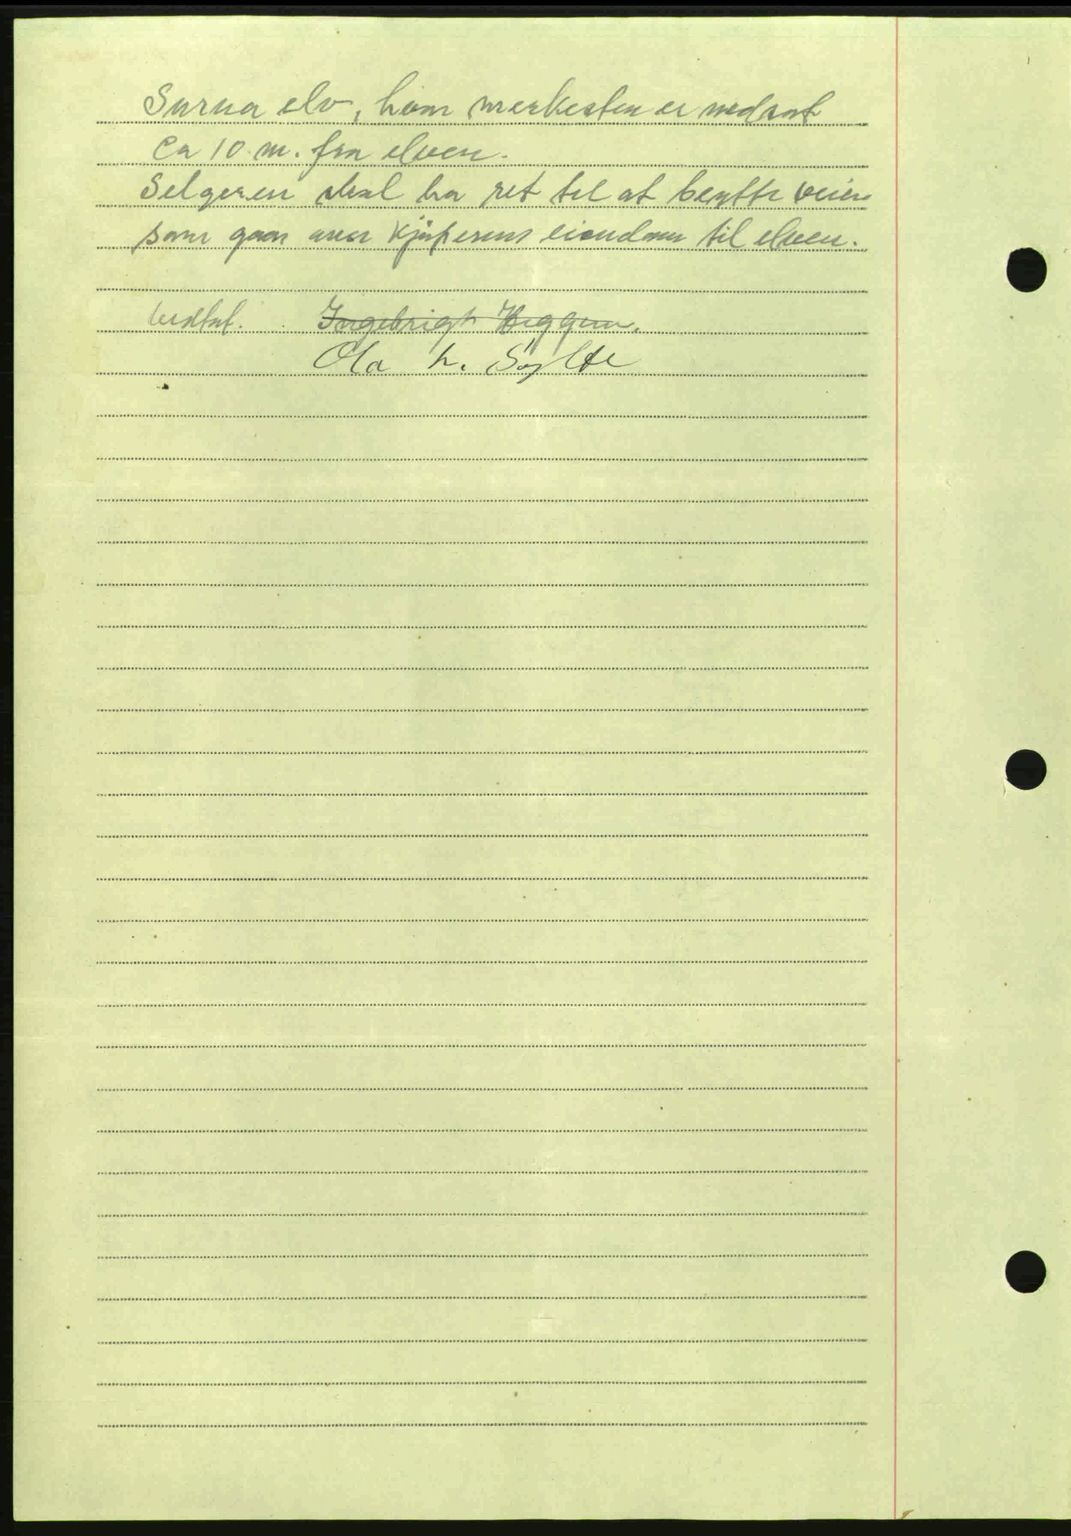 Surna elv, hvor merkesten er nedsat
Ca 10 m. fra elven.
Selgeren skal ha ret til at benytte veien
som gaar over kjøperens eiendom til elven.
vedtat. Ingebrigt Heggem.
Ola L. Sylte